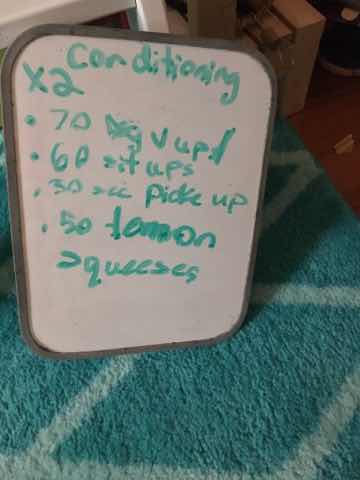 Conditioning
x2
• 70 v ups
• 60 sit ups
• 30 sec pick up
• 50 lemon
squeeses